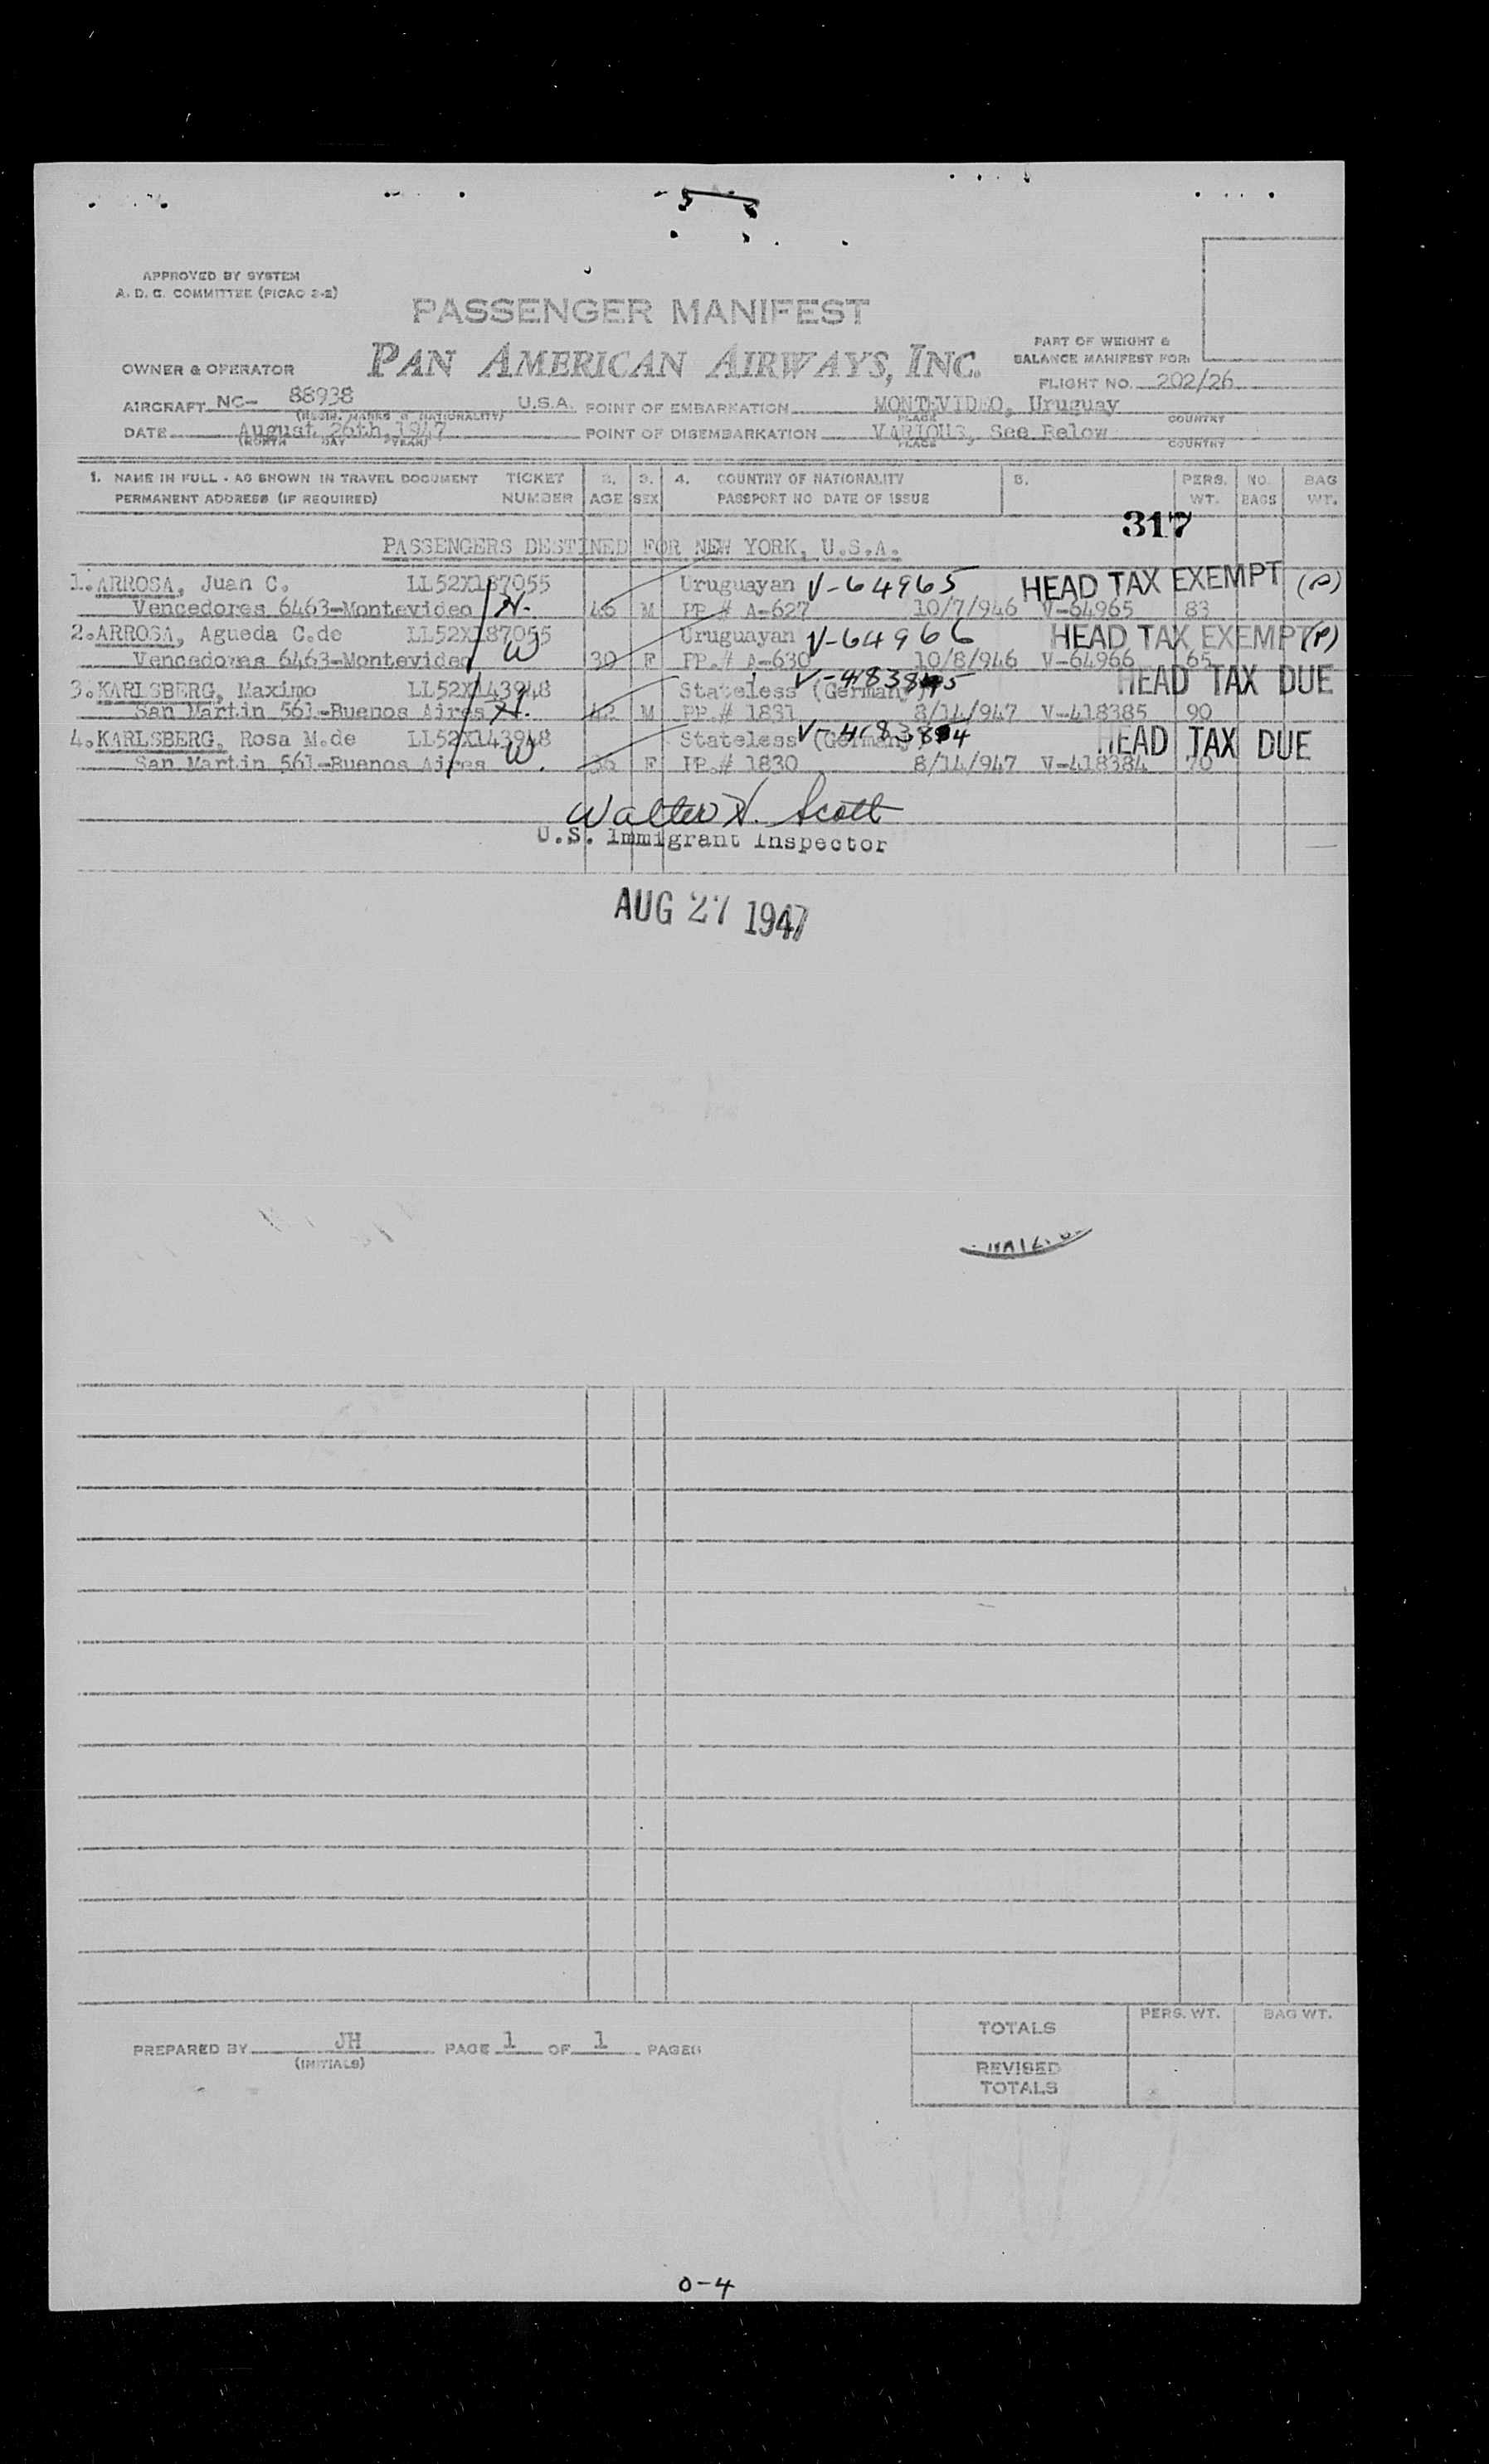 APPROVED BY SYSTEM
A. D. C. COMMITTEE (PICAO 2-2)
PASSENGER MANIFEST
PAN AMERICAN AIRWAYS, INC.
OWNER & OPERATOR
PART OF WEIGHT &
BALANCE MANIFEST FOR:
FLIGHT NO. 202/26
AIRCRAFT NC- 88938 U.S.A. POINT OF EMBARKATION MONTEVIDEO, Uruguay
(REGIS. MARKS & NATIONALITY) PLACE COUNTRY
DATE August 26th, 1947 POINT OF DISEMBARKATION VARIOUS, See Below
(MONTH DAY YEAR) PLACE COUNTRY
1. NAME IN FULL - AS SHOWN IN TRAVEL DOCUMENT TICKET 2. 3. 4. COUNTRY OF NATIONALITY 5. PERS. NO. BAG
PERMANENT ADDRESS (IF REQUIRED) NUMBER AGE SEX PASSPORT NO DATE OF ISSUE WT. BAGS WT.
317
PASSENGERS DESTINED FOR NEW YORK, U.S.A.
1. ARROSA, Juan C. LL52X187055 Uruguayan V-64965 HEAD TAX EXEMPT (P)
Vencedores 6463-Montevideo H. 46 M PP.# A-627 10/7/946 V-64965 83
2. ARROSA, Agueda C.de LL52X187055 Uruguayan V-64966 HEAD TAX EXEMPT (P)
Vencedores 6463-Montevideo W 39 F PP.# A-630 10/8/946 V-64966 65
3. KARLSBERG, Maximo LL52X143948 Stateless (German) HEAD TAX DUE
San Martin 561-Buenos Aires H. 42 M PP.# 1831 8/14/947 V-418385 90
4. KARLSBERG, Rosa M.de LL52X143948 Stateless (German) HEAD TAX DUE
San Martin 561-Buenos Aires W. F PP.# 1830 8/14/947 V-418384 70
Walter H. Scott
U.S. Immigrant Inspector
AUG 27 1947
TOTALS PERS. WT. BAG WT.
PREPARED BY JH PAGE 1 OF 1 PAGES
(INITIALS)
REVISED
TOTALS
0-4